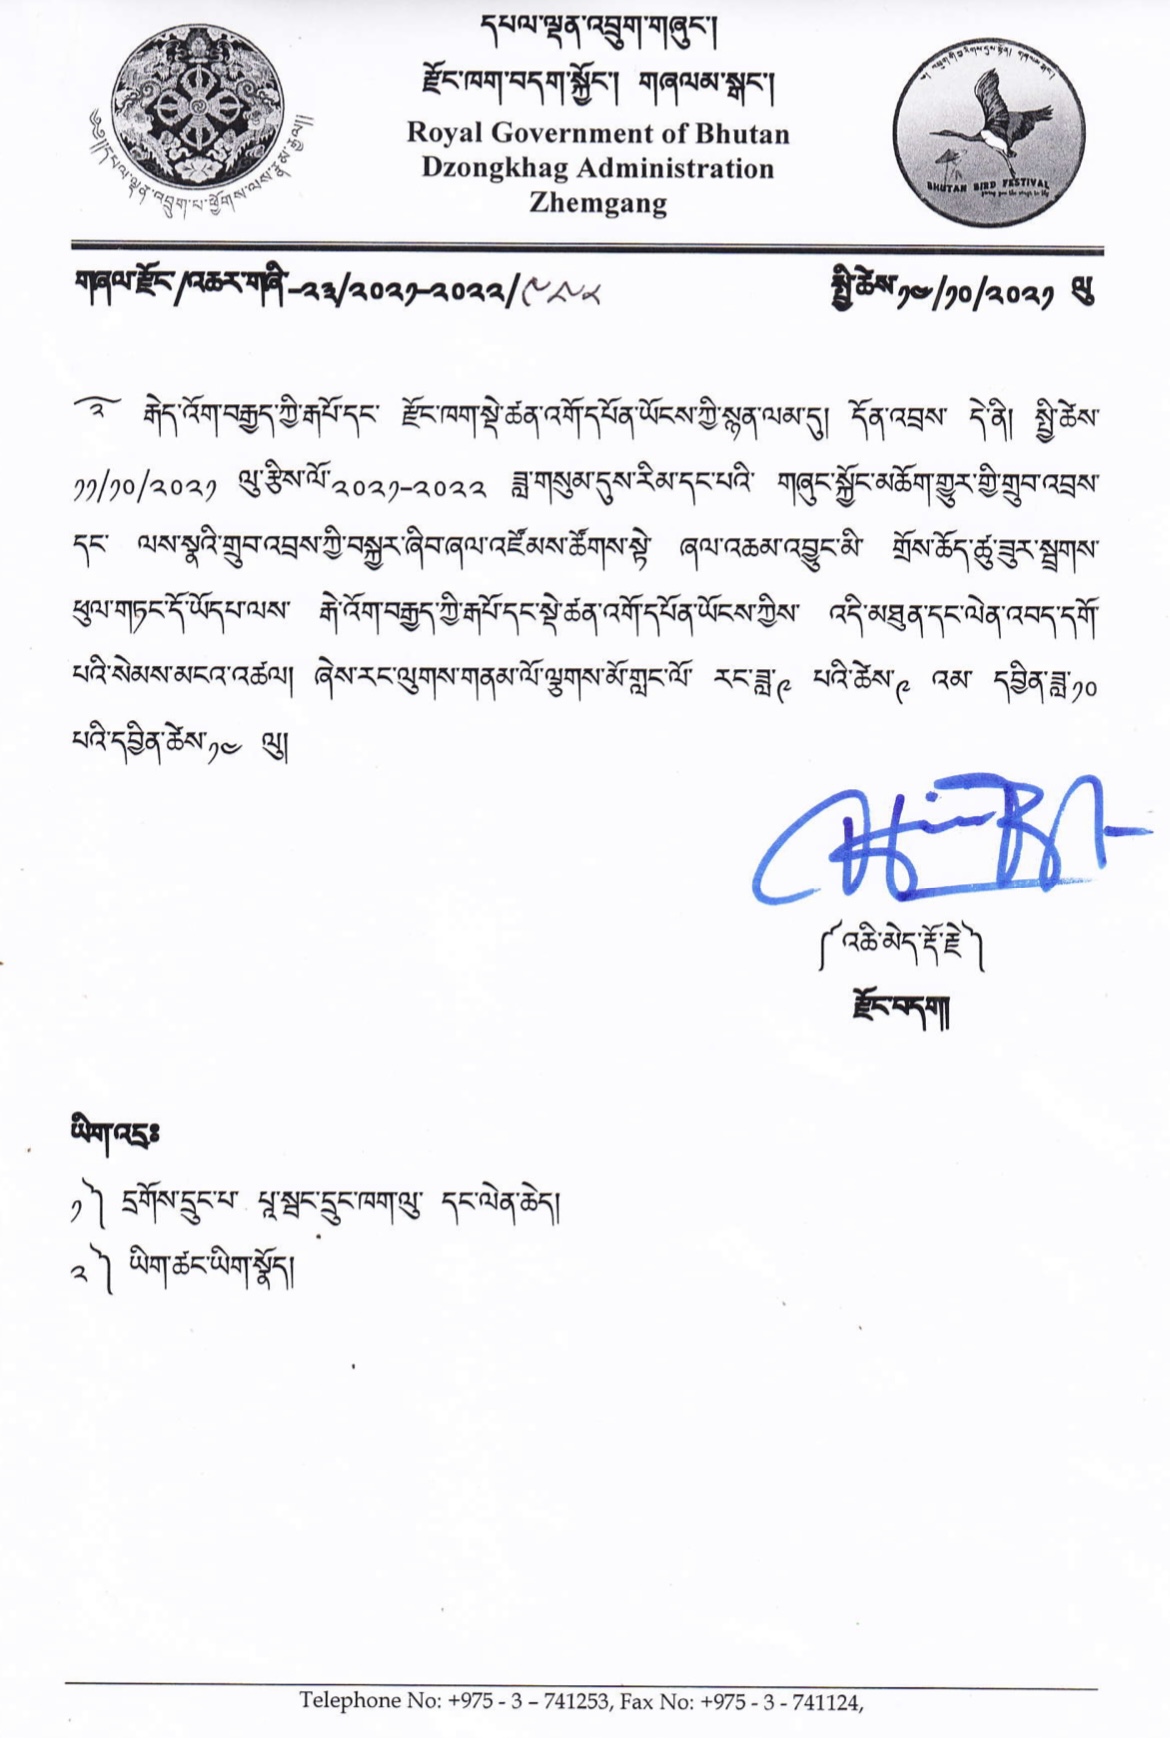 དཔལ་ལྡན་འབྲུག་གཞུང་།
རྫོང་ཁག་བདག་སྐྱོང་། གཞལམ་སྒང་།
Royal Government of Bhutan
Dzongkhag Administration
Zhemgang
༄༅།།དཔལ་ལྡན་འབྲུག་པ་ཕྱོགས་ལས་རྣམ་རྒྱལ།།
BHUTAN BIRD FESTIVAL
གཞལ་རྫོང་/འཆར་གཞི་-༢༣/༢༠༢༡-༢༠༢༢/༩༨༩༤ སྤྱི་ཚེས་༡༤/༡༠/༢༠༢༡ ལུ
རྒེད་འོག་བརྒྱད་ཀྱི་རྒཔོ་དང་ རྫོང་ཁག་སྡེ་ཚན་འགོ་དཔོན་ཡོངས་ཀྱི་སྙན་ལམ་དུ། དོན་འབྲས་ དེ་ནི། སྤྱི་ཚེས་
༡༡/༡༠/༢༠༢༡ ལུ་རྩིས་ལོ་༢༠༢༡-༢༠༢༢ ཟླ་གསུམ་དུས་རིམ་དང་པའི་ གཞུང་སྐྱོང་མཆོག་གྱུར་གྱི་གྲུབ་འབྲས་
དང་ ལས་སྣའི་གྲུབ་འབྲས་ཀྱི་བསྐྱར་ཞིབ་ཞལ་འཛོམས་ཚོགས་སྟེ་ ཞལ་འཆམ་འབྱུང་མི་ གྲོས་ཆོད་ཚུ་ཟུར་སྦྲགས་
ཕུལ་གཏང་དོ་ཡོདཔ་ལས་ རྒེ་འོག་བརྒྱད་ཀྱི་རྒཔོ་དང་སྡེ་ཚན་འགོ་དཔོན་ཡོངས་ཀྱིས་ འདི་མཐུན་དང་ལེན་འབད་དགོ་
པའི་སེམས་མངའ་འཚལ། ཞེས་རང་ལུགས་གནམ་ལོ་ལྕགས་མོ་གླང་ལོ་ རང་ཟླ་༩ པའི་ཚེས་༩ འམ་ དབྱིན་ཟླ་༡༠
པའི་དབྱིན་ཚེས་༡༤ ལུ།
༼འཆི་མེད་རྡོ་རྗེ༽
རྫོང་བདག།
ཡིག་འདྲ༔
༡༽ དྲགོས་དྲུང་པ་ པཱ་སྦང་དྲུང་ཁག་ལུ་ དང་ལེན་ཆེད།
༢༽ ཡིག་ཚང་ཡིག་སྣོད།
Telephone No: +975 - 3 – 741253, Fax No: +975 - 3 - 741124,